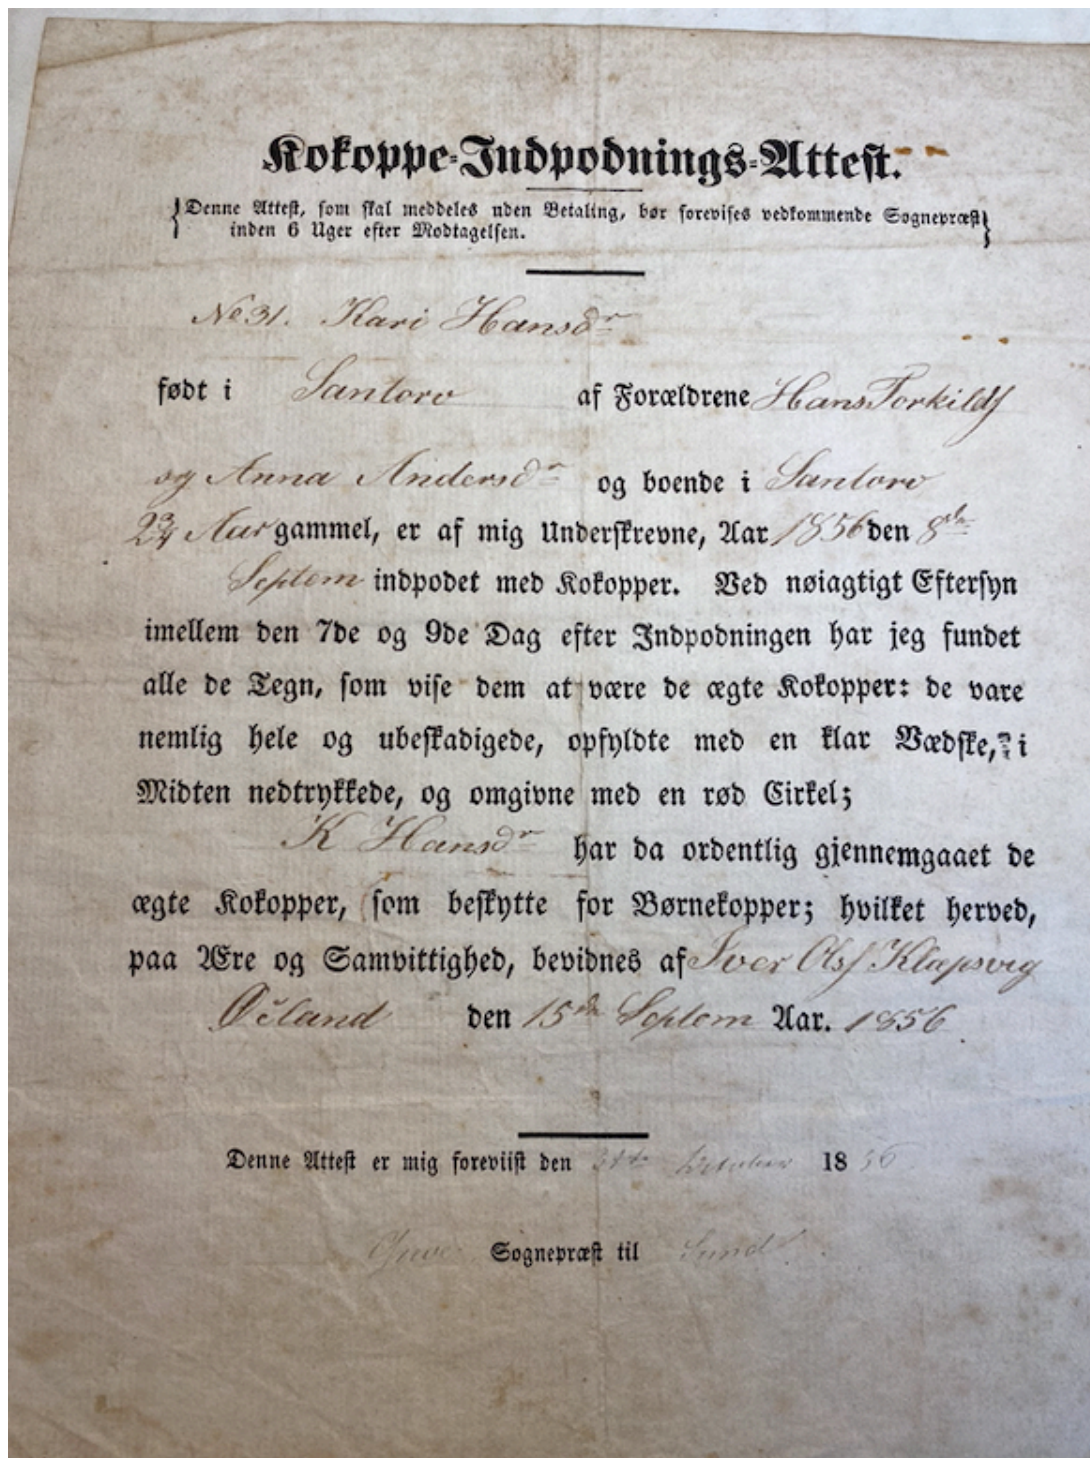 Kokoppe-Indpodnings-Attest.
Denne Attest, som skal meddeles uden Betaling, bør forevises vedkommende Sognepræst
inden 6 Uger efter Modtagelsen.
No 31. Kari Hansdr
født i Santorv af Forældrene Hans Torkilds
og Anna Andersdr og boende i Santorv
2¾ Aar gammel, er af mig Underskrevne, Aar 1856 den 8de
Septem indpodet med Kokopper. Ved nøiagtigt Eftersyn
imellem den 7de og 9de Dag efter Indpodningen har jeg fundet
alle de Tegn, som vise dem at være de ægte Kokopper: de vare
nemlig hele og ubeskadigede, opfyldte med en klar Vædske, i
Midten nedtrykkede, og omgivne med en rød Cirkel;
K Hansdr har da ordentlig gjennemgaaet de
ægte Kokopper, som beskytte for Børnekopper; hvilket herved,
paa Ære og Samvittighed, bevidnes af Iver Ols Klepsvig
Öeland den 15de Septem Aar. 1856
Denne Attest er mig foreviist den October 1856
Sognepræst til Sund